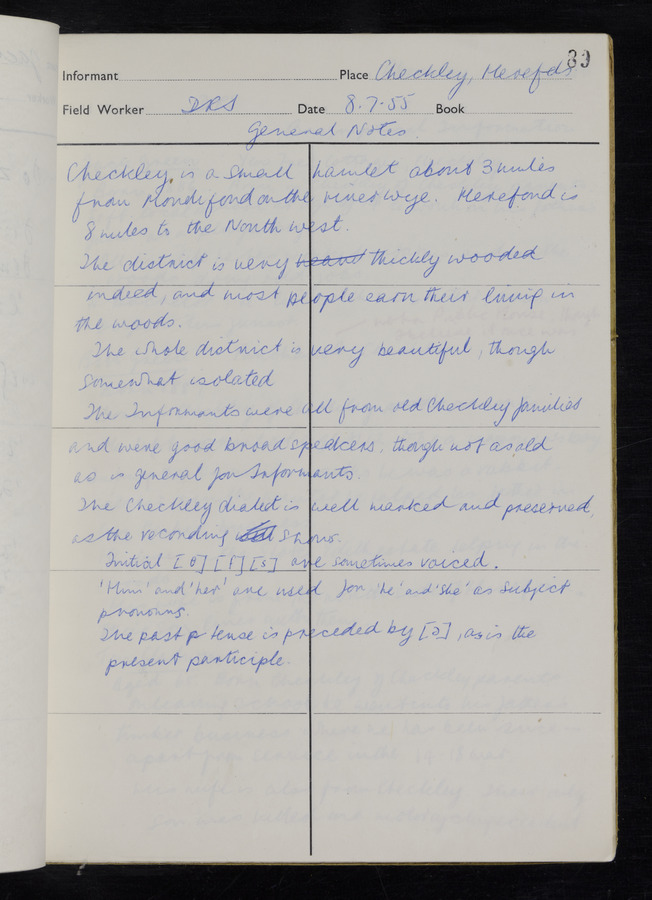 39
Informant Place Checkley, Herefds
Field Worker DRS Date 8.7.55 Book
General Notes.
Checkley is a small hamlet about 3 miles
from Mordiford on the river Wye. Hereford is
8 miles to the North west.
The district is very thickly wooded
indeed, and most people earn their living in
the woods.
The whole district is very beautiful, though
somewhat isolated
The Informants were all from old Checkley families
and were good broad speakers, though not as old
as is general for Informants.
The Checkley dialect is well marked and preserved,
as the recording shows.
Initial [θ] [f] [s] are sometimes voiced.
'Him' and 'her' are used for 'he' and 'she' as subject
pronouns.
The past p tense is preceded by [ə], as is the
present participle.